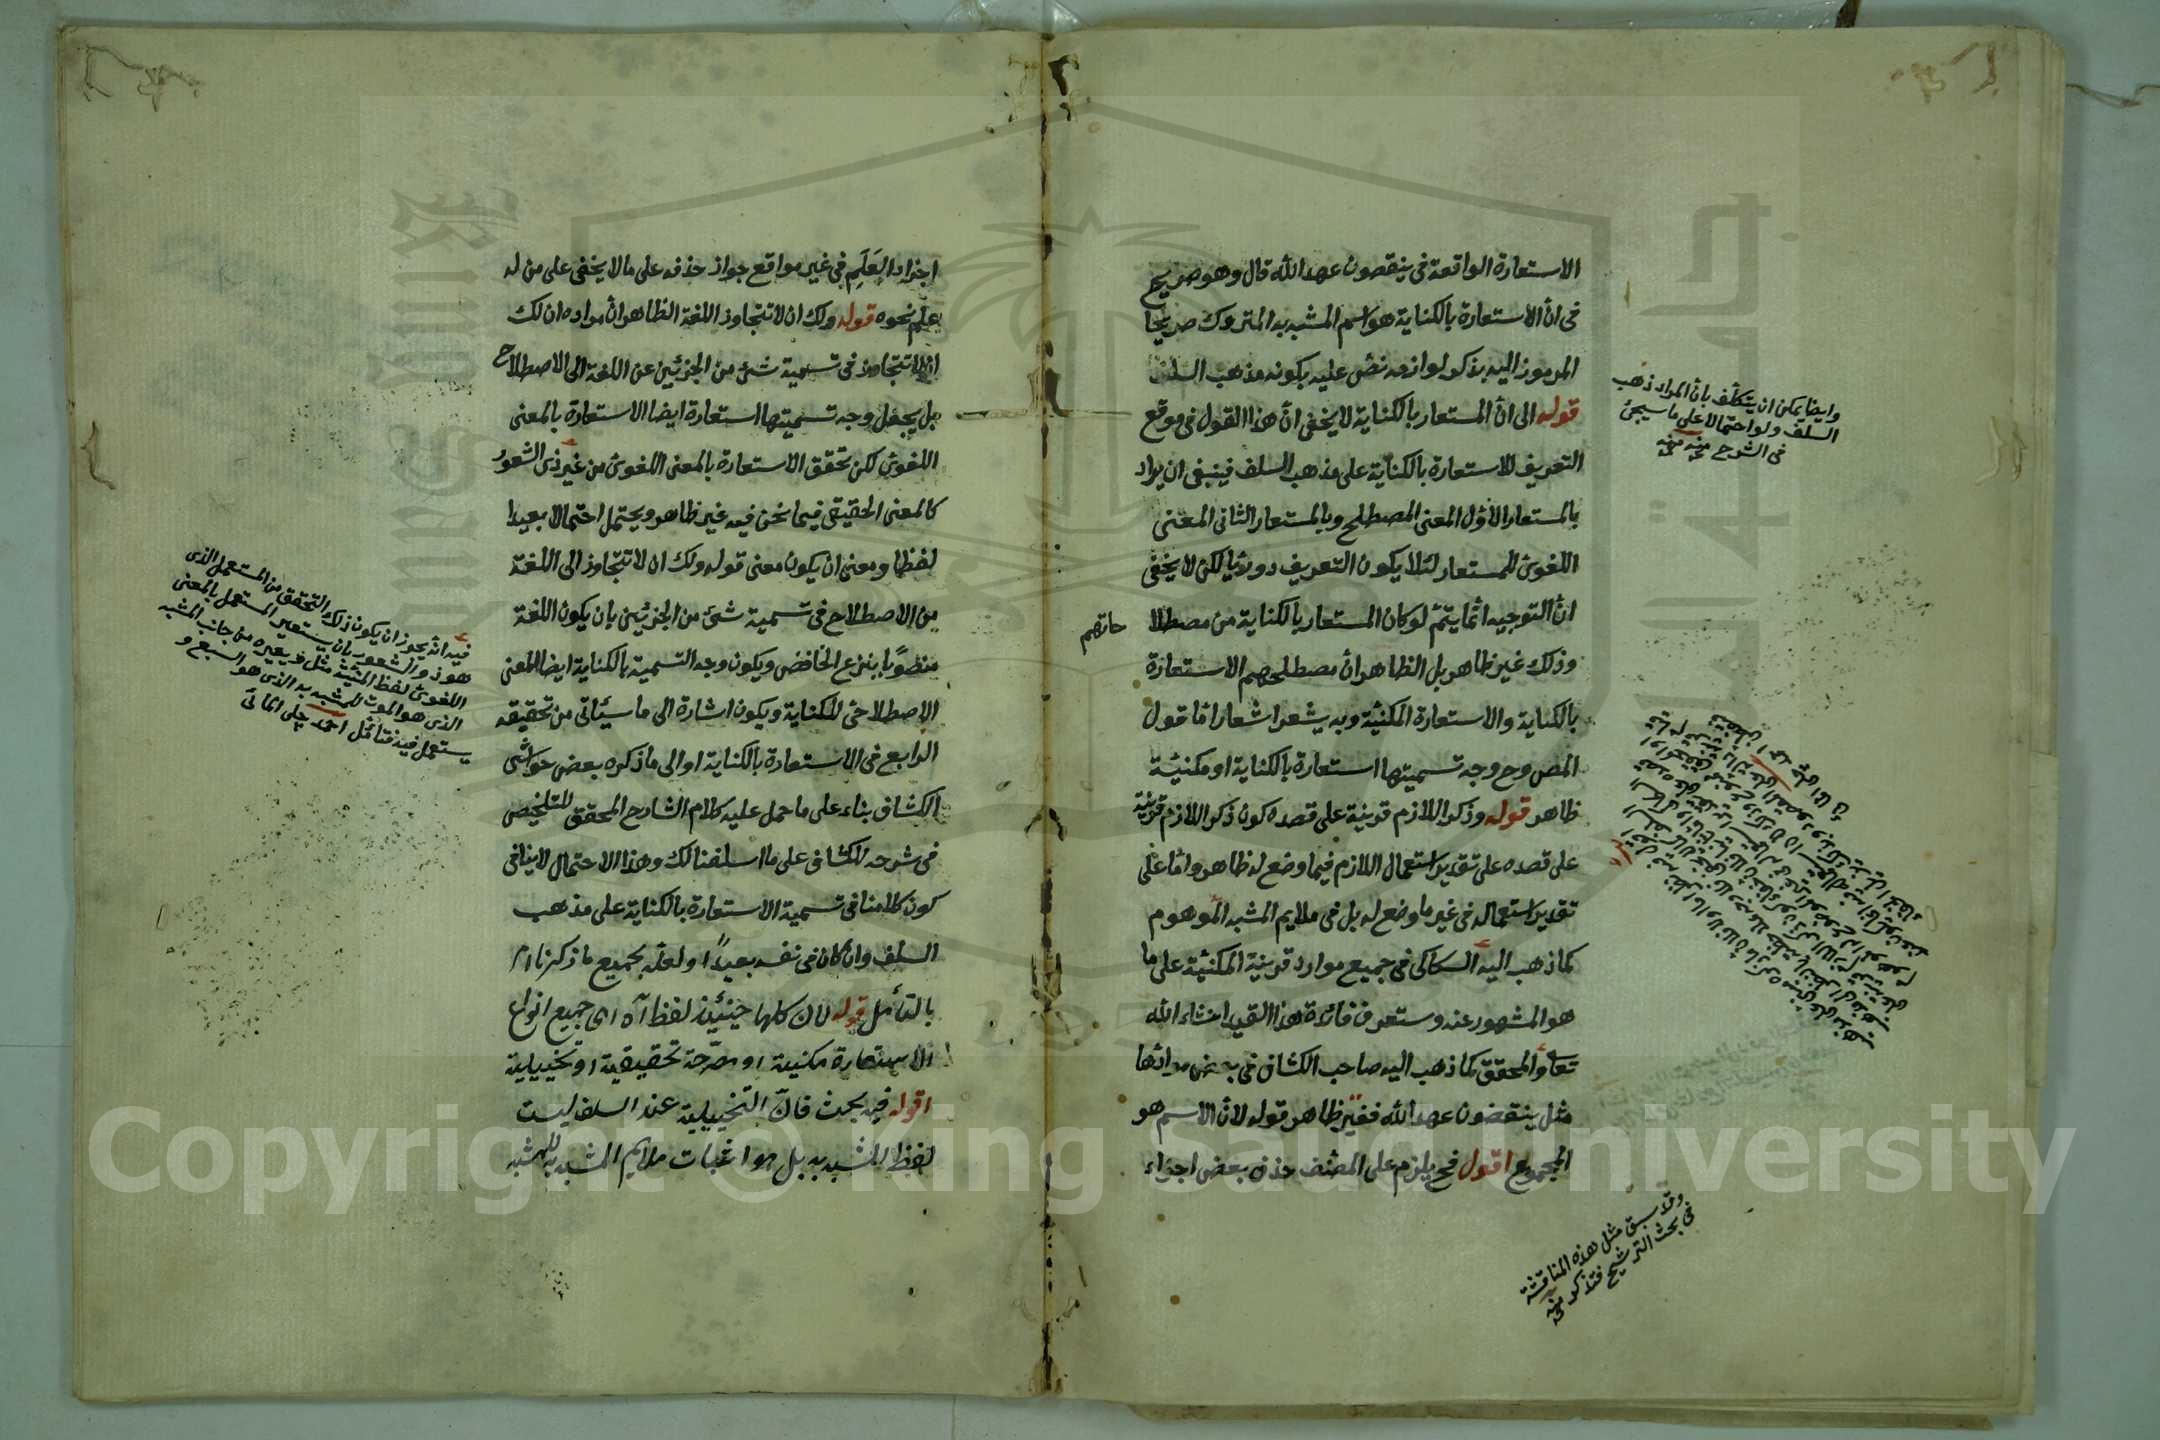 الاستعارة الواقعة فى ينقضون عهد الله قال وهو صريح
فى ان الاستعارة بالكناية هو اسم المشبه به المتروك صريحا
المرموز اليه بذكر لوازمه نص عليه بكونه مذهب السلف
قوله الى ان المستعار بالكناية لا يخفى ان هذا القول فى موقع
التعريف للاستعارة بالكناية على مذهب السلف فينبغى ان يراد
بالمستعار الاول المعنى المصطلح وبالمستعار الثانى المعنى
اللغوى للمستعار لئلا يكون التعريف دوريا لكن لا يخفى
ان التوجيه انما يتم لو كان المستعار بالكناية من مصطلا
حاتهم
وذلك غير ظاهر بل الظاهر ان مصطلحهم الاستعارة
بالكناية والاستعارة المكنية وبه يشعر اشعارا ما قول
المص وح وجه تسميتها استعارة بالكناية او مكنية
ظاهر قوله وذكر اللازم قرينة على قصده كون ذكر اللازم قرينة
على قصده على تقدير استعمال اللازم فيما وضع له ظاهر واما على
تقدير استعماله فى غير ما وضع له بل فى ملايم المشبه الموهوم
كما ذهب اليه السكاكى فى جميع موارد قرينة المكنية على ما
هو المشهور عنه وستعرف فائدة هذا القيد انشاء الله
تعا والمحقق كما ذهب اليه صاحب الكشاف فى بعض موادها
مثل ينقضون عهد الله فغير ظاهر قوله لان الاسم هو
المجموع اقول فح يلزم على المصنف حذف بعض اجزاء
وايضا يمكن ان يتكلف بان المراد ذهب
السلف ولو احتمالا على ما سيجئ
فى الشرح منه
وقد سبق مثل هذه المناقشة
فى بحث الترشيح فتذكر منه
اجزاء العلم فى غير مواقع جواز حذفه على ما لا يخفى على من له
علم نحوه قوله ولك ان لا تتجاوز اللغة الظاهر ان مراده ان لك
ان لا تتجاوز فى تسمية شئ من الجزئين عن اللغة الى الاصطلاح
بل يجعل وجه تسميتها استعارة ايضا الاستعارة بالمعنى
اللغوى لكن تحقق الاستعارة بالمعنى اللغوى من غير ذى الشعور
كالمعنى الحقيقى فيما نحن فيه غير ظاهر ويحتمل احتمالا بعيدا
لفظا ومعنى ان يكون معنى قوله ولك ان لا تتجاوز الى اللغة
من الاصطلاح فى تسمية شئ من الجزئين بان يكون اللغة
منصوبا بنزع الخافض ويكون وجه التسمية بالكناية ايضا المعنى
الاصطلاحى للكناية ويكون اشارة الى ما سيأتى من تحقيقه
الرابع فى الاستعارة بالكناية او الى ما ذكره بعض حواشى
الكشاف بناء على ما حمل عليه كلام الشارح المحقق للتلخيص
فى شرحه للكشاف على ما اسلفنا لك وهذا الاحتمال لا ينافى
كون كلامنا فى تسمية الاستعارة بالكناية على مذهب
السلف وان كان فى نفسه بعيدا ولعله بجميع ما ذكرنا امر
بالتأمل قوله لان كلها حينئذ لفظ اه اى جميع انواع
الاستعارة مكنية او مصرحة تحقيقية او تخييلية
اقوله فيه بحث فان التخييلية عند السلف ليست
لفظ المشبه به بل هو اثبات ملايم المشبه به للمشبه
فيه انه يجوز ان يكون ذلك التحقق من المستعمل الذى
هو ذو الشعور بان يستعير المستعمل بالمعنى
اللغوى لفظ المنية مثل غيره من جانب المشبه
الذى هو الموت للمشبه به الذى هو السبع و
يستعمل فيه فتأمل احمد چلبى